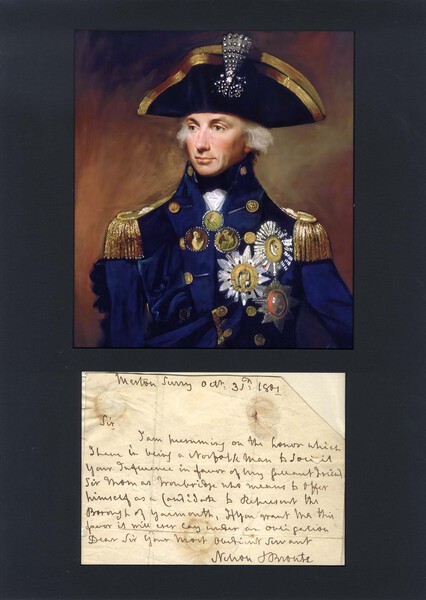 Merton Surry Octr. 31st. 1801
Sir
I am presuming on the honor which
I have in being a Norfolk Man to Solicit
Your Influence in favor of my gallant friend
Sir Thomas Troubridge who means to offer
himself as a Candidate to Represent the
Borough of Yarmouth, If You grant me this
favor it will ever lay under an obligation
Dear Sir Your Most Obedient Servant
Nelson & Bronte